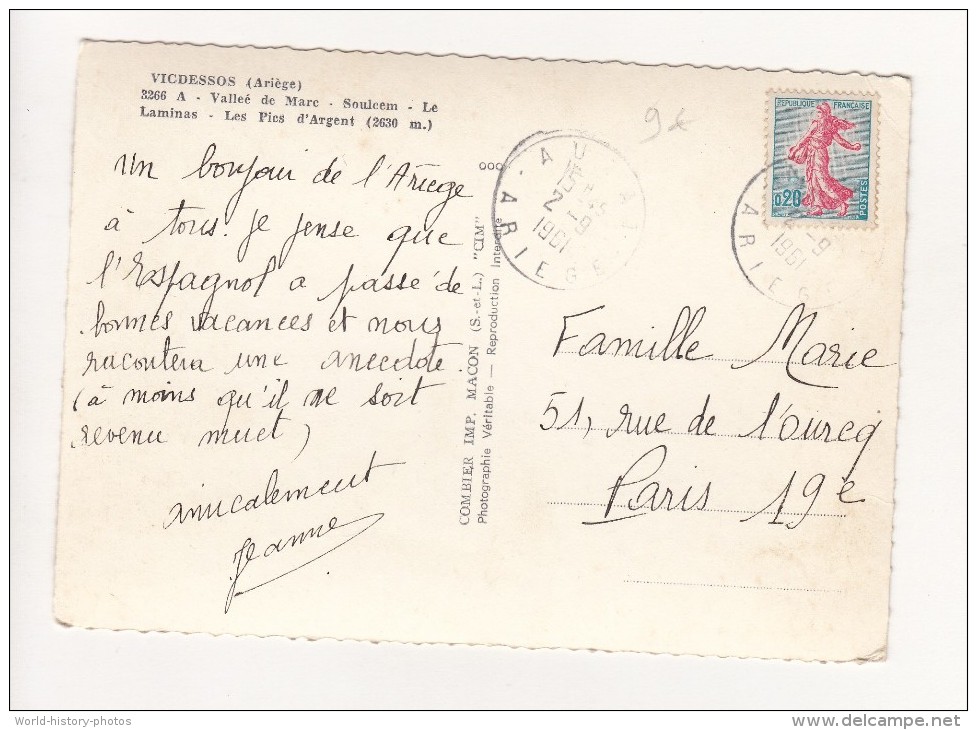 VICDESSOS (Ariège)
3266 A - Valleé de Marc - Soulcem - Le
Laminas - Les Pics d'Argent (2630 m.)
Un bonjour de l'Ariège
à tous. Je pense que
l'Espagnol a passé de
bonnes vacances et nous
racontera une anecdote.
(à moins qu'il ne soit
revenu muet)
amicalement
Jeanne
COMBIER IMP. MACON (S.-et-L.) "CIM"
Photographie Véritable — Reproduction Interdite
9€
AU
2-9
1961
ARIEGE
REPUBLIQUE FRANÇAISE
0,20
POSTES
2-9
1961
ARIEGE
Famille Marie
51, rue de l'ourcq
Paris 19e
World-history-photos
www.delcampe.net